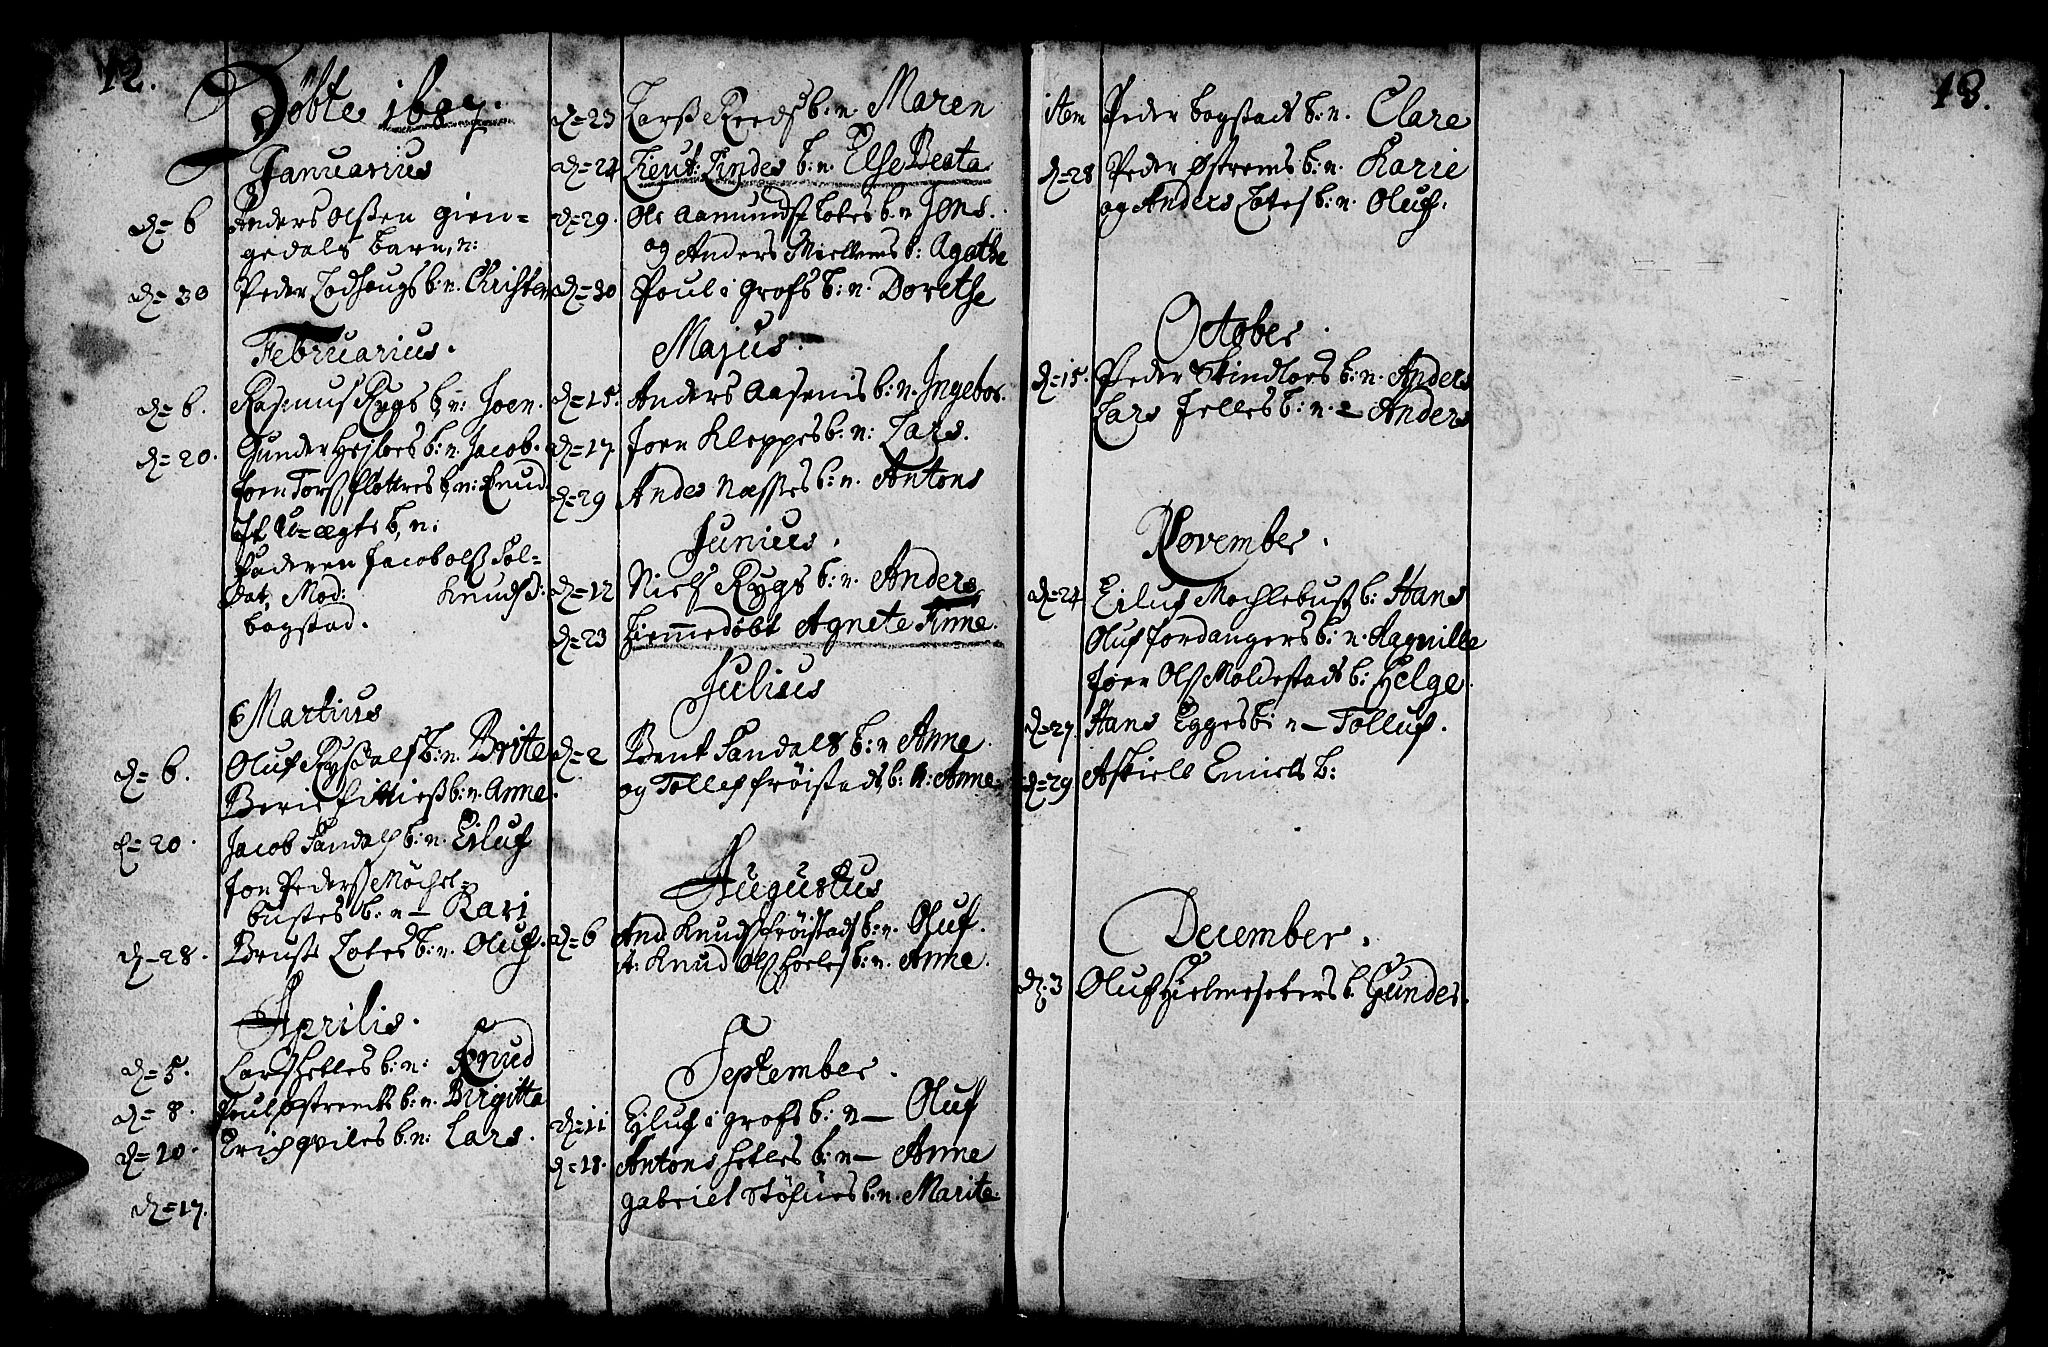 12.
Døbte 1687.
Januarius
d= 6 Anders Olßen gien=
gedals barn, n:
d= 30 Peder Lodhougs b:n. Christen
Februarius.
d= 6. Rasmus Rygs b, n: Joen.
d= 20. Gunder Hejloes b: n. Jacob.
Joen Torß fløttres b, n: Knud
It U=ægte b, n:
faderen Jacob olß Sol=
dat, Mod: Knudsd:
bogstad.
Martius
d= 6. Oluf Rysdals b: n. Brite
b: n. Anne.
d= 20. Jacob Sandals b: n. Eiluf
Jon Pederß Møchel=
bustes b: n – Kari
d= 28. Lotes b: n. Oluf.
Aprilis.
d= 5. Lars Hetles b: n: Knud
d= 8. Poul østrems b: n. Birgitta
d= 10. Erich qviles b: n: Lars.
d= 17.
d= 23 Larß Reeds b: n. Maren
d= 24 Lieut: Lindes b: n. Else Beata
d= 29. Ole Aamundß Lotes b. n Jens.
og Anders Mielhems b: Agathe
d= 30 Poul i grofs b: n. Dorethe
Majus.
d= 15. Anders Aasenis b: n. Ingebor.
d= 17. Joen Kleppes b: n: Lars.
d= 29 Andes Næsses b: n. Antons
Junius.
d= 12 Niels Rygs b: n. Anders
d= 23 Hiemmedøbt Agnete Finne.
Julius
d= 2 Bent Sandals b: n Anne.
og Tollef frøistads b: n: Anne.
Augustus
d= 6 And. Knudß frøistads b: n. Oluf.
it: Knud Olß b: n. Anne.
September.
d= 11 Eiluf i grofs b: n – Oluf
d= 18. Antons Hetles b: n – Anne
gabriel Støfnes b: n. Marite.
13.
item Peder bogstads b: n. Clare
d= 28 Peder Østrems b: n. Karie
og Anders Lotes b: n. Oluf.
October.
d= 15. Peder Skindloes b: n. Anders
Lars Felles b: n. – Anders
November.
d= 24 Eiluf Mochlebust b: Hans
Oluf fordangers b: n. Ragnille
Joen Olß Moldestads b: Helge.
d= 27. Hans Egges b: n – Tolluf.
d= 29 Askiell b:
December.
d. 3 Oluf Hielmeseters b. Gunder.